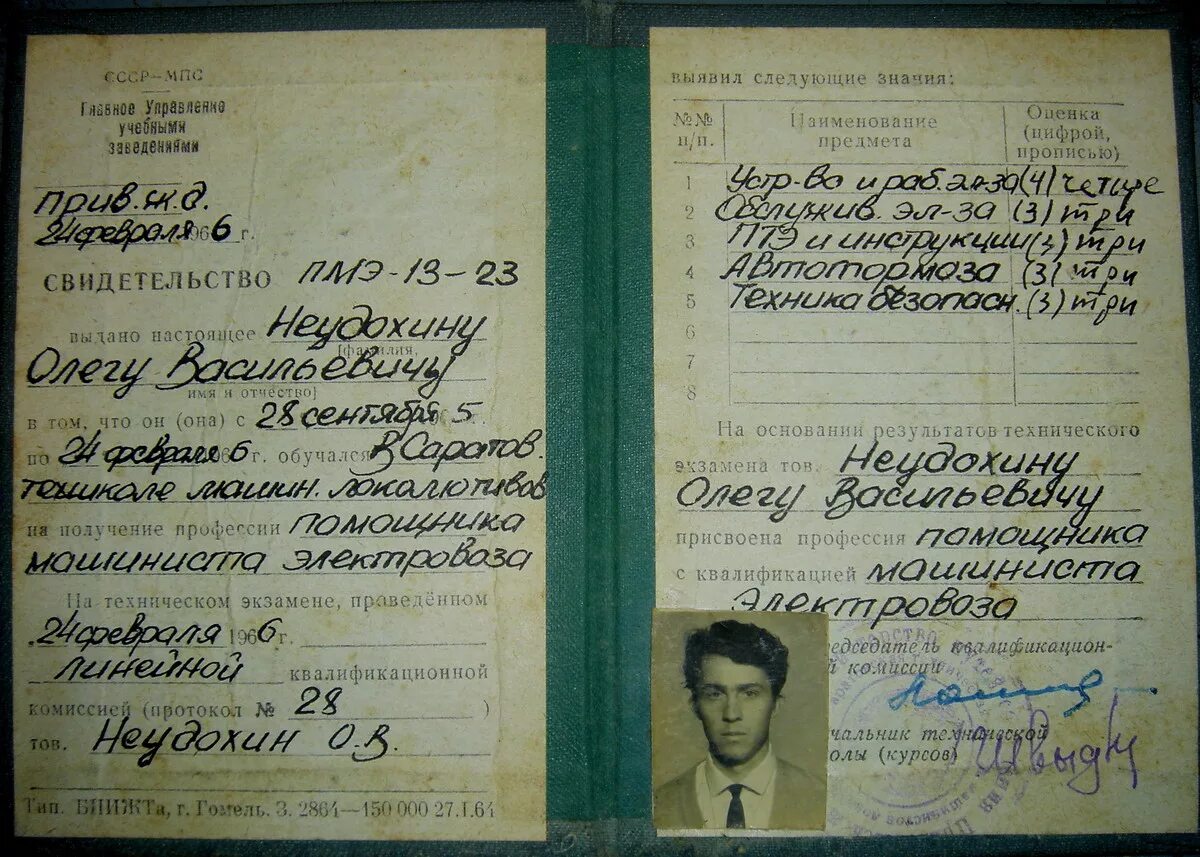 СССР—МПС
Главное Управление
учебными
заведениями
Прив. ж.д.
24 февраля 1966 г.
СВИДЕТЕЛЬСТВО ПМЭ-13-23
выдано настоящее Неудохину
[фамилия,
Олегу Васильевичу
имя и отчество]
в том, что он (она) с 28 сентября 5 г.
по 24 февраля 1966 г. обучался В Саратов.
техшколе машин. локомотивов
на получение профессии помощника
машиниста электровоза
На техническом экзамене, проведённом
24 февраля 1966 г.
линейной квалификационной
комиссией (протокол № 28 )
тов. Неудохин О.В.
Тип. БИИЖТа, г. Гомель. З. 2864—150 000 27.I.64
выявил следующие знания:
№№ п/п. Наименование предмета Оценка (цифрой, прописью)
1 Устр-во и раб. эл-за (4) четыре
2 Обслужив. эл-за (3) три
3 ПТЭ и инструкции (3) три
4 Автотормоза (3) три
5 Техника безопасн. (3) три
6
7
8
На основании результатов технического
экзамена тов. Неудохину
Олегу Васильевичу
присвоена профессия помощника
с квалификацией машиниста
электровоза
едседатель квалификацион-
й комиссии
чальник технической
олы (курсов)